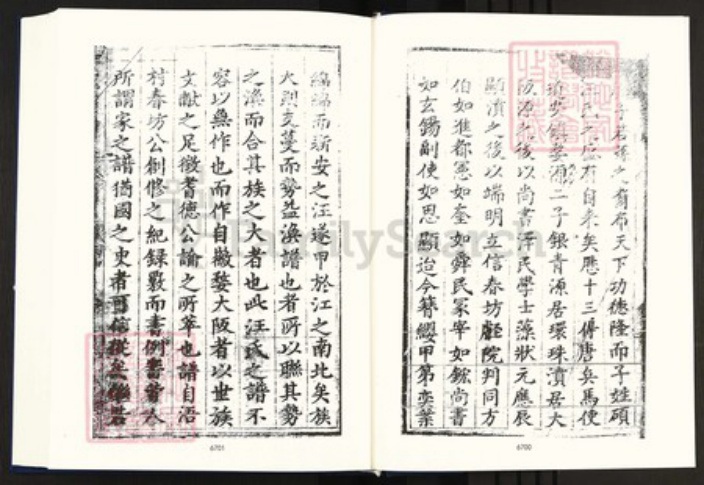 子若孫之商布天下功德隆而子姓碩
之盛有自来矣歷十三傳唐兵馬使
二子銀青源居環珠瀆居大
阪源之後以尚書澤民學士藻狀元應辰
顯瀆之後以端明立信春坊戲院判同方
伯如進都憲如奎如舜民冢宰如鋐尚書
如玄錫副使如思顯迨今簪纓甲第奕葉
6700
綿綿而新安之汪遂甲於江之南北矣族
大則支蔓而勢益渙譜也者所以聯其勢
之渙而合其族之大者也此汪氏之譜不
容以無作也而作自徽婺大阪者以世族
文獻之足徵耆德公諭之所萃也譜自沿
村春坊公創修之紀錄數而書例書
所謂家之譜猶國之史者可信從矣
6701
FamilySearch